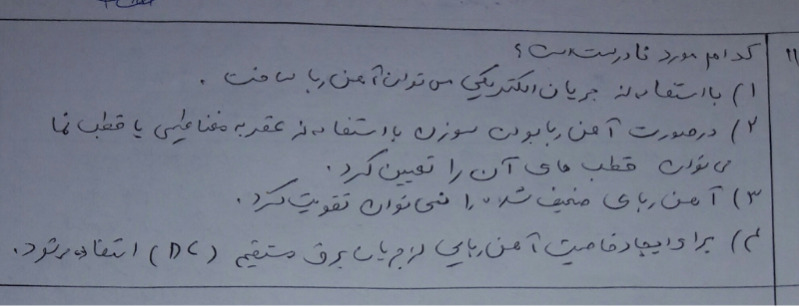 ۱۱ کدام مورد نادرست است؟
۱) با استفاده از جریان الکتریکی می توان آهن ربا ساخت.
۲) در صورت آهن ربا بودن سوزن با استفاده از عقربه مغناطیسی یا قطب نما
می توان قطب های آن را تعیین کرد.
۳) آهن ربای ضعیف شده را نمی توان تقویت کرد.
۴) برای ایجاد خاصیت آهن ربایی از جریان برق مستقیم (DC) استفاده می شود.